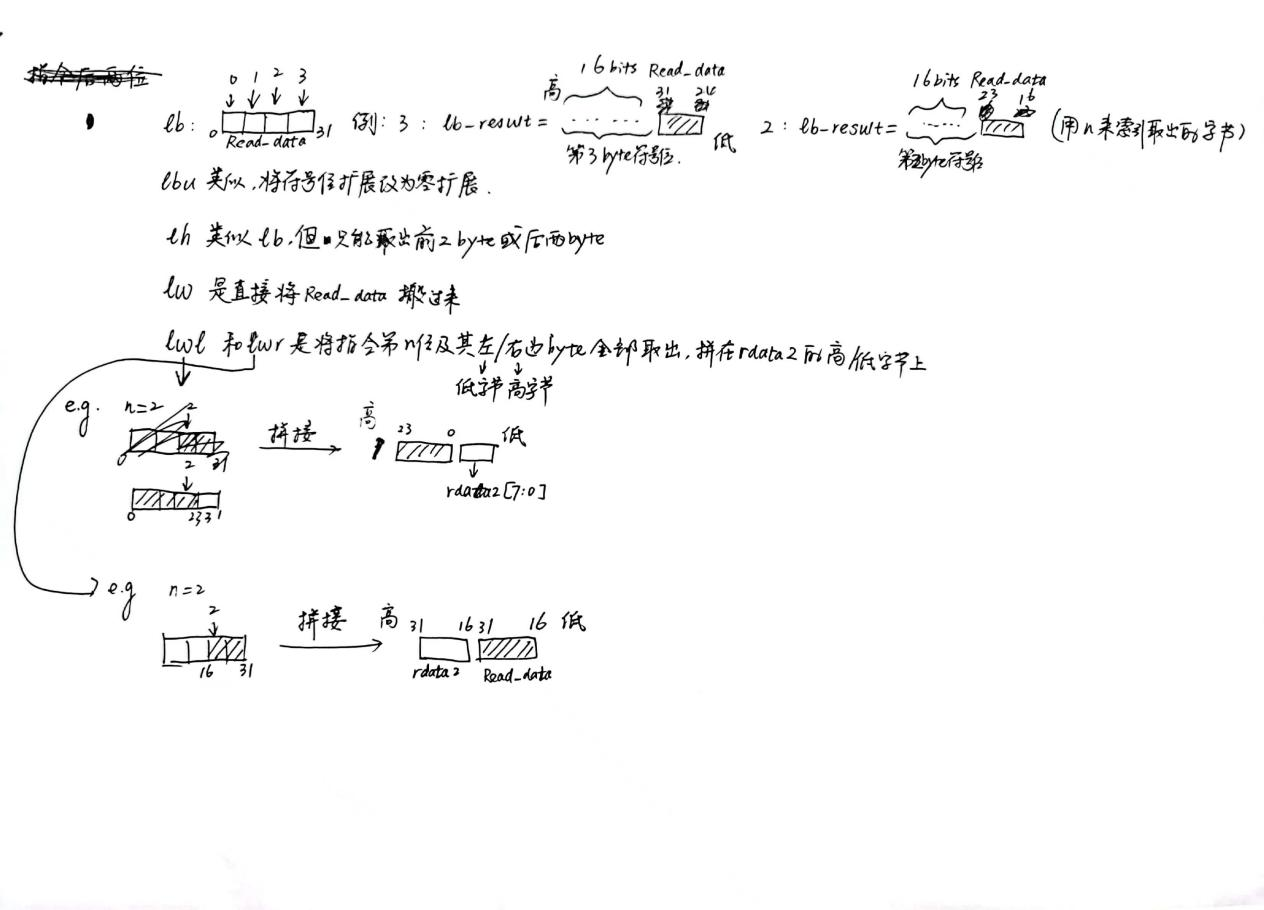 指令后两位
lb: 0 1 2 3 0 31 Read_data 例: 3: lb_result= 高 16bits Read_data 31 24 低 第3byte符号位. 2: lb_result= 16bits Read_data 23 16 第2byte符号位 (用n来索引取出的字节)
lbu 类似,将符号位扩展改为零扩展.
lh 类似lb,但只能取出前2byte或后两byte
lw 是直接将Read_data 搬过来
lwl 和lwr是将指令第n位及其左/右边byte全部取出,拼在rdata2的高/低字节上
低字节 高字节
e.g. n=2 2
0 2 31
拼接 高 23 0 低
rdata2[7:0]
2
0 23 31
e.g n=2
2
16 31
拼接 高 31 16 31 16 低
rdata2 Read_data